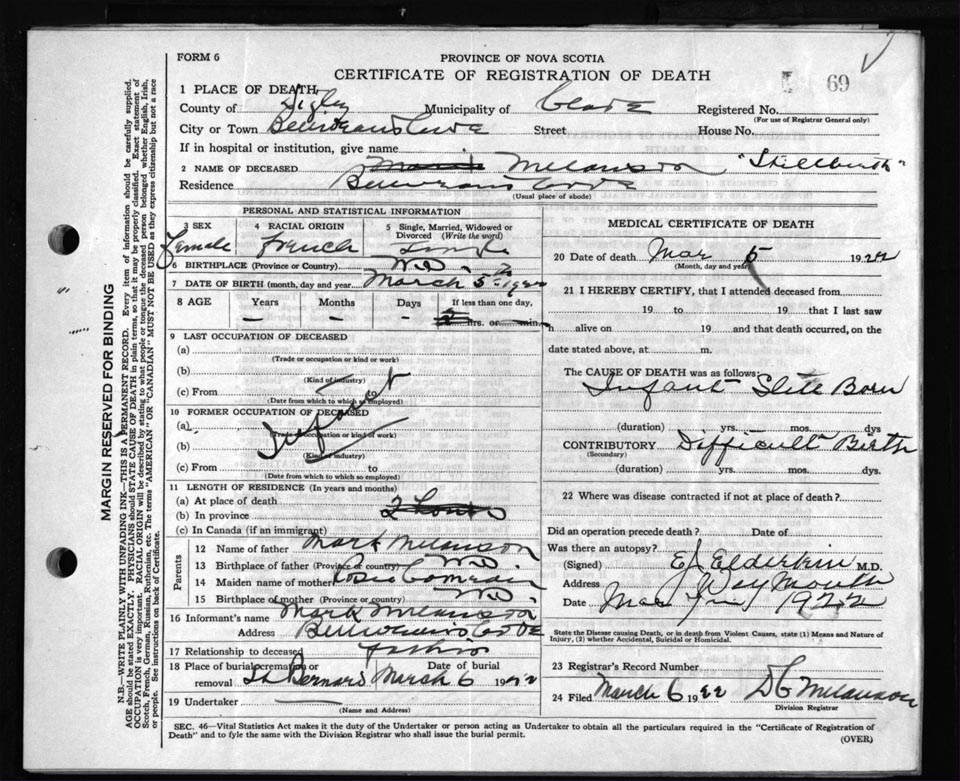 FORM 6
PROVINCE OF NOVA SCOTIA
CERTIFICATE OF REGISTRATION OF DEATH
69
1 PLACE OF DEATH
County of Digby Municipality of Clare Registered No.
(For use of Registrar General only)
City or Town Belliveaus Cove Street House No.
If in hospital or institution, give name
2 NAME OF DECEASED Melanson "Stillbirth"
Residence Belliveaus Cove
(Usual place of abode)
PERSONAL AND STATISTICAL INFORMATION
3 SEX Female
4 RACIAL ORIGIN French
5 Single, Married, Widowed or Divorced (Write the word) Single
6 BIRTHPLACE (Province or Country) N.S.
7 DATE OF BIRTH (month, day and year) March 5th 1922
8 AGE Years Months Days If less than one day,
— — — hrs. or min.
9 LAST OCCUPATION OF DECEASED
(a)
(Trade or occupation or kind or work)
(b)
(Kind of industry)
(c) From
(Date from which to which so employed)
10 FORMER OCCUPATION OF DECEASED
(a) Infant
(Trade or occupation or kind of work)
(b)
(Kind of industry)
(c) From to
(Date from which to which so employed)
11 LENGTH OF RESIDENCE (In years and months)
(a) At place of death
(b) In province 2 hours
(c) In Canada (if an immigrant)
Parents
12 Name of father Mark Melanson
13 Birthplace of father (Province or country) N.S.
14 Maiden name of mother Rosie Comeau
15 Birthplace of mother (Province or country) N.S.
16 Informant's name Mark Melanson
Address Belliveaus Cove
17 Relationship to deceased Father
18 Place of burial cremation or removal St Bernard Date of burial March 6 1922
19 Undertaker
(Name and Address)
MEDICAL CERTIFICATE OF DEATH
20 Date of death Mar 5 1922
(Month, day and year)
21 I HEREBY CERTIFY, that I attended deceased from
19 to 19 that I last saw
alive on 19 and that death occurred, on the
date stated above, at m.
The CAUSE OF DEATH was as follows:
Infant Still Born
(duration) yrs. mos. dys
CONTRIBUTORY Difficult Birth
(Secondary)
(duration) yrs. mos. dys.
22 Where was disease contracted if not at place of death?
Did an operation precede death? Date of
Was there an autopsy?
(Signed) E J Elderkin M.D.
Address Weymouth
Date Mar 1922
State the Disease causing Death, or in death from Violent Causes, state (1) Means and Nature of Injury, (2) whether Accidental, Suicidal or Homicidal.
23 Registrar's Record Number
24 Filed March 6 1922 Melanson
Division Registrar
SEC. 46—Vital Statistics Act makes it the duty of the Undertaker or person acting as Undertaker to obtain all the particulars required in the "Certificate of Registration of
Death" and to fyle the same with the Division Registrar who shall issue the burial permit.
(OVER)
MARGIN RESERVED FOR BINDING
N.B.—WRITE PLAINLY WITH UNFADING INK—THIS IS A PERMANENT RECORD. Every item of information should be carefully supplied.
AGE should be stated EXACTLY. PHYSICIANS should STATE CAUSE OF DEATH in plain terms, so that it may be properly classified. Exact statement of
OCCUPATION is very important. RACIAL ORIGIN will be described by stating to what people or tongue the deceased person belonged whether English, Irish,
Scotch, French, German, Russian, Ruthenian, etc. The terms "AMERICAN" or "CANADIAN" MUST NOT BE USED as they express citizenship but not a race
or people. See instructions on back of Certificate.